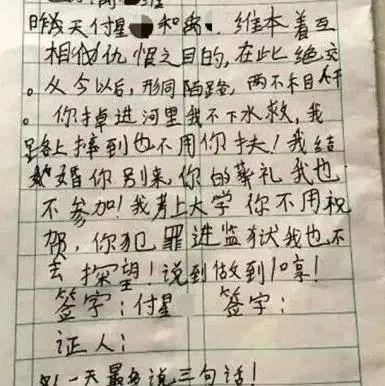 昨天付星 和高 维本着互
相仇恨之目的,在此绝交
。从今以后,形同陌路,两不相干
。你掉进河里我不下水救,我
路上摔到也不用你扶!我结
婚你别来,你的葬礼我也
不参加!我考上大学你不用祝
贺,你犯罪进监狱我也不
去探望!说到做到10享!
签字:付星 签字:
证人:
一天最多说三句话!